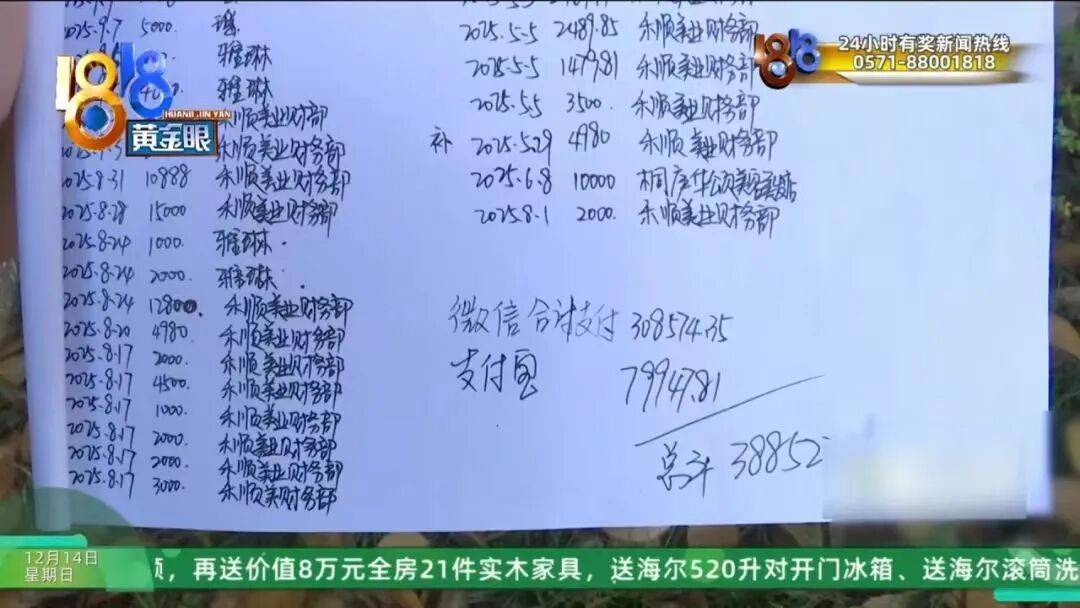 2025.9.7 5000.
雅琳
雅琳
禾顺美业财务部
禾顺美业财务部
2025.8.31 10888 禾顺美业财务部
2025.8.28 15000 禾顺美业财务部
2025.8.24 1000. 雅琳.
2025.8.24 2000. 雅琳.
2025.8.24 12800. 禾顺美业财务部
2025.8.20 4980. 禾顺美业财务部
2025.8.17 2000. 禾顺美业财务部
2025.8.17 4500. 禾顺美业财务部
2025.8.17 1000. 禾顺美业财务部
2025.8.17 2000. 禾顺美业财务部
2025.8.17 2000. 禾顺美业财务部
2025.8.17 3000. 禾顺美财务部
2025.5.5 2489.85 禾顺美业财务部
2025.5.5 1479.81 禾顺美业财务部
2025.5.5 3500. 禾顺美业财务部
补 2025.5.29 4980 禾顺美业财务部
2025.6.8 10000 桐庐华颂美容
2025.8.1 2000. 禾顺美业财务部
微信合计支付 308574.35
支付宝 79947.81
总计 38852
1818
HUANG JIN YAN
黄金眼
1818
24小时有奖新闻热线
0571-88001818
12月14日
星期日
再送价值8万元全房21件实木家具，送海尔520升对开门冰箱、送海尔滚筒洗